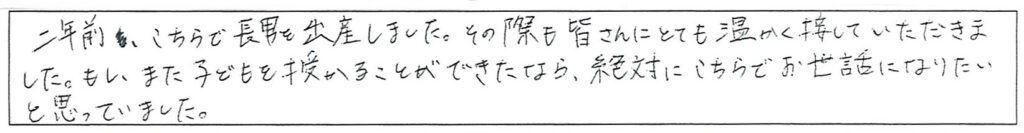 二年前も、こちらで長男を出産しました。その際も皆さんにとても温かく接していただきま
した。もし、また子どもを授かることができたなら、絶対にこちらでお世話になりたい
と思っていました。